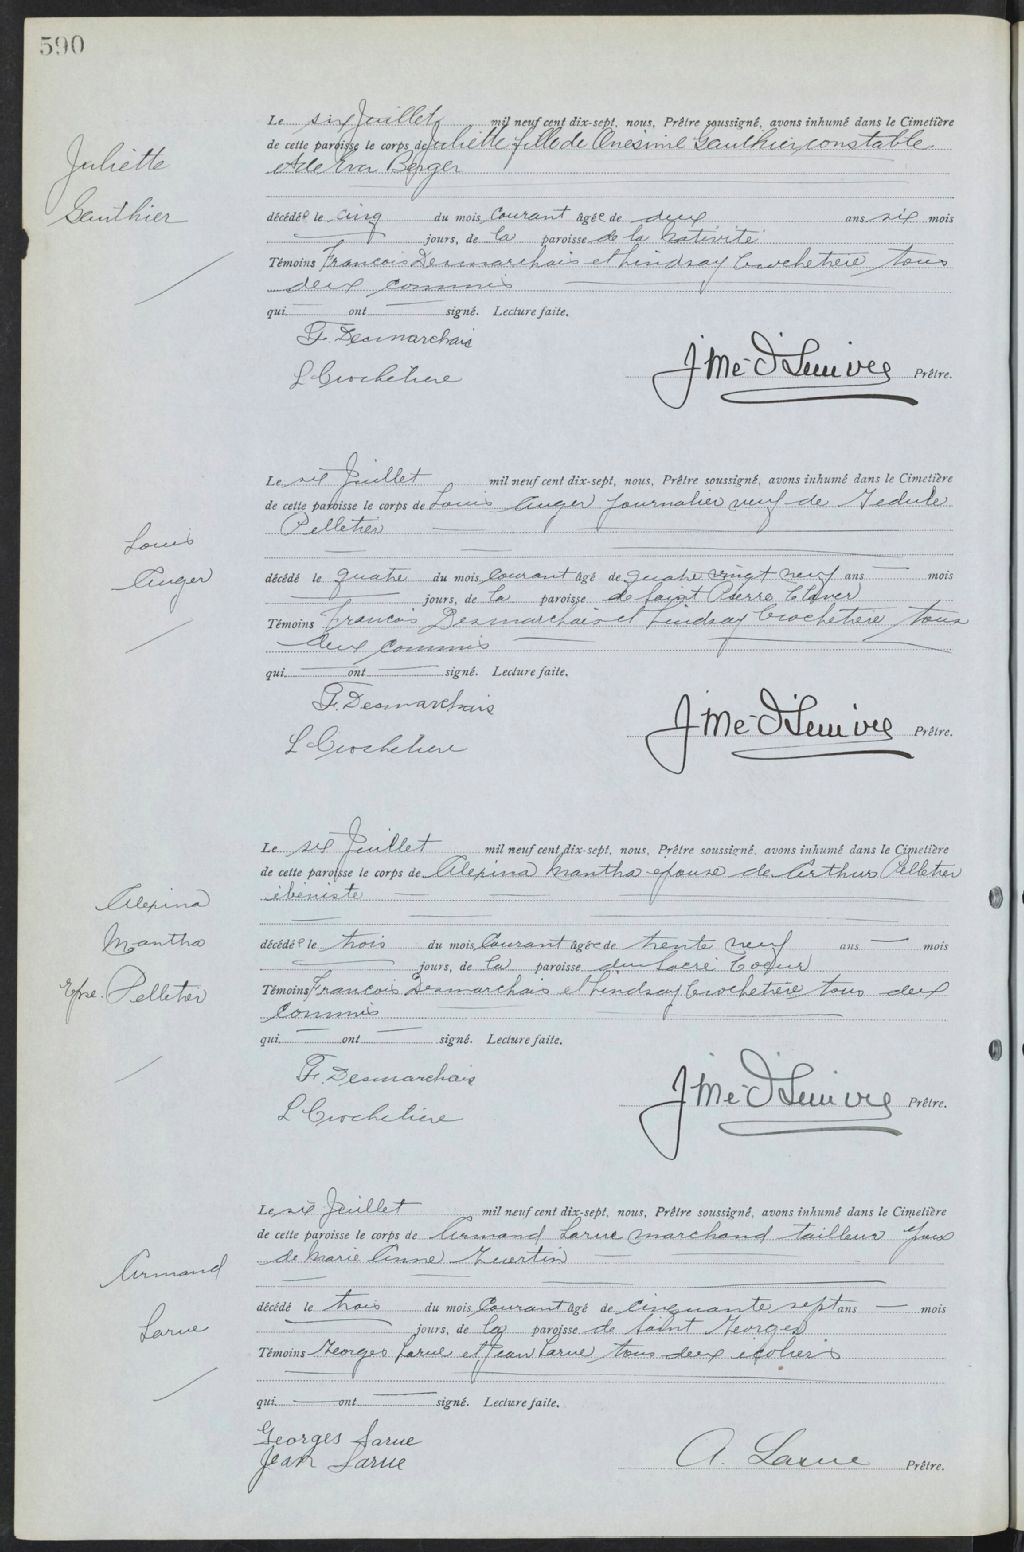 590
Juliette
Gauthier
Le six Juillet mil neuf cent dix-sept, nous, Prêtre soussigné, avons inhumé dans le Cimetière
de cette paroisse le corps de Juliette fille de Onésime Gauthier constable
et de Eva Berger
décédée le cinq du mois Courant âgée de deux ans six mois
jours, de la paroisse de la Nativité
Témoins Francois Desmarchais et Lindsay Crochetière tous
deux commis
qui ont signé. Lecture faite.
F. Desmarchais
L Crochetiere
Prêtre.
Louis
Auger
Le six Juillet mil neuf cent dix-sept, nous, Prêtre soussigné, avons inhumé dans le Cimetière
de cette paroisse le corps de Louis Auger journalier veuf de
Pelletier
décédé le quatre du mois Courant âgé de quatre vingt neuf ans mois
jours, de la paroisse de Saint Pierre Claver
Témoins Francois Desmarchais et Lindsay Crochetière tous
deux commis
qui ont signé. Lecture faite.
F. Desmarchais
L Crochetiere
Prêtre.
Alexina
Mantha
Epse. Pelletier
Le six Juillet mil neuf cent dix-sept, nous, Prêtre soussigné, avons inhumé dans le Cimetière
de cette paroisse le corps de Alexina Mantha épouse de Arthur Pelletier
ébéniste
décédée le trois du mois Courant âgée de trente neuf ans mois
jours, de la paroisse du Sacré Coeur
Témoins Francois Desmarchais et Lindsay Crochetière tous deux
commis
qui ont signé. Lecture faite.
F. Desmarchais
L Crochetiere
Prêtre.
Armand
Larue
Le six Juillet mil neuf cent dix-sept, nous, Prêtre soussigné, avons inhumé dans le Cimetière
de cette paroisse le corps de Armand Larue marchand tailleur époux
de Marie Anne
décédé le trois du mois Courant âgé de cinquante sept ans mois
jours, de la paroisse de Saint Georges
Témoins Georges Larue et Jean Larue tous deux écoliers
qui ont signé. Lecture faite.
Georges Larue
Jean Larue
A. Larue Prêtre.